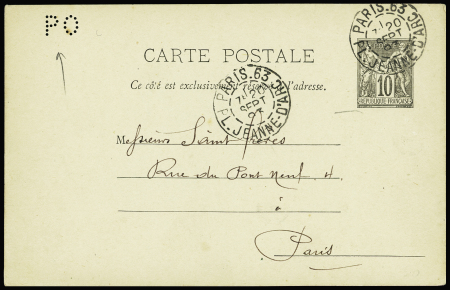 PO
PARIS.63
7/ 20
SEPT
97
PL. JEANNE-D'ARC
10
RÉPUBLIQUE FRANÇAISE
CARTE POSTALE
Ce côté est exclusivement réservé à l'adresse.
PARIS.63
7/ 20
SEPT
97
PL. JEANNE-D'ARC
Messieurs Saint frères
Rue du Pont Neuf 4
à
Paris